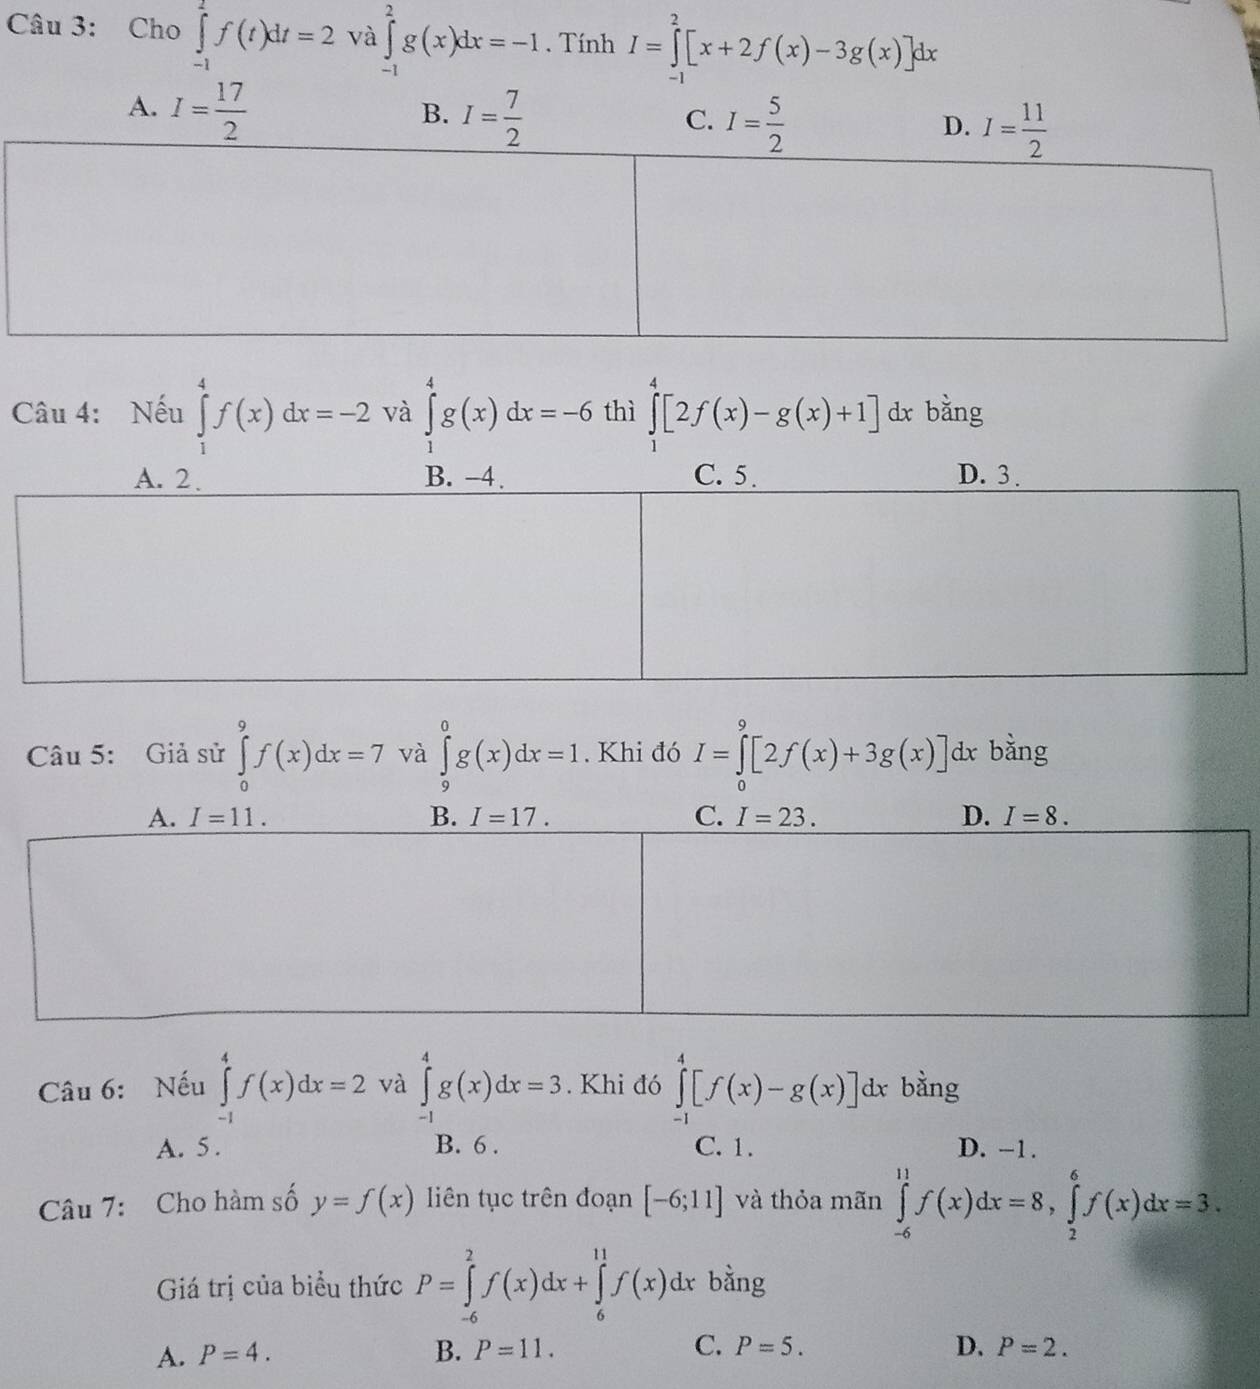 Câu 3: Cho ∫_{-1}^{2} f(t)dt = 2 và ∫_{-1}^{2} g(x)dx = −1. Tính I = ∫_{-1}^{2} [x + 2f(x) − 3g(x)]dx
A. I = 17/2 B. I = 7/2 C. I = 5/2 D. I = 11/2
Câu 4: Nếu ∫_{1}^{4} f(x) dx = −2 và ∫_{1}^{4} g(x) dx = −6 thì ∫_{1}^{4} [2f(x) − g(x) + 1] dx bằng
A. 2. B. −4. C. 5. D. 3.
Câu 5: Giả sử ∫_{0}^{9} f(x)dx = 7 và ∫_{9}^{0} g(x)dx = 1. Khi đó I = ∫_{0}^{9} [2f(x) + 3g(x)]dx bằng
A. I = 11. B. I = 17. C. I = 23. D. I = 8.
Câu 6: Nếu ∫_{-1}^{4} f(x)dx = 2 và ∫_{-1}^{4} g(x)dx = 3. Khi đó ∫_{-1}^{4} [f(x) − g(x)]dx bằng
A. 5. B. 6. C. 1. D. −1.
Câu 7: Cho hàm số y = f(x) liên tục trên đoạn [−6;11] và thỏa mãn ∫_{-6}^{11} f(x)dx = 8, ∫_{2}^{6} f(x)dx = 3.
Giá trị của biểu thức P = ∫_{-6}^{2} f(x)dx + ∫_{6}^{11} f(x)dx bằng
A. P = 4. B. P = 11. C. P = 5. D. P = 2.